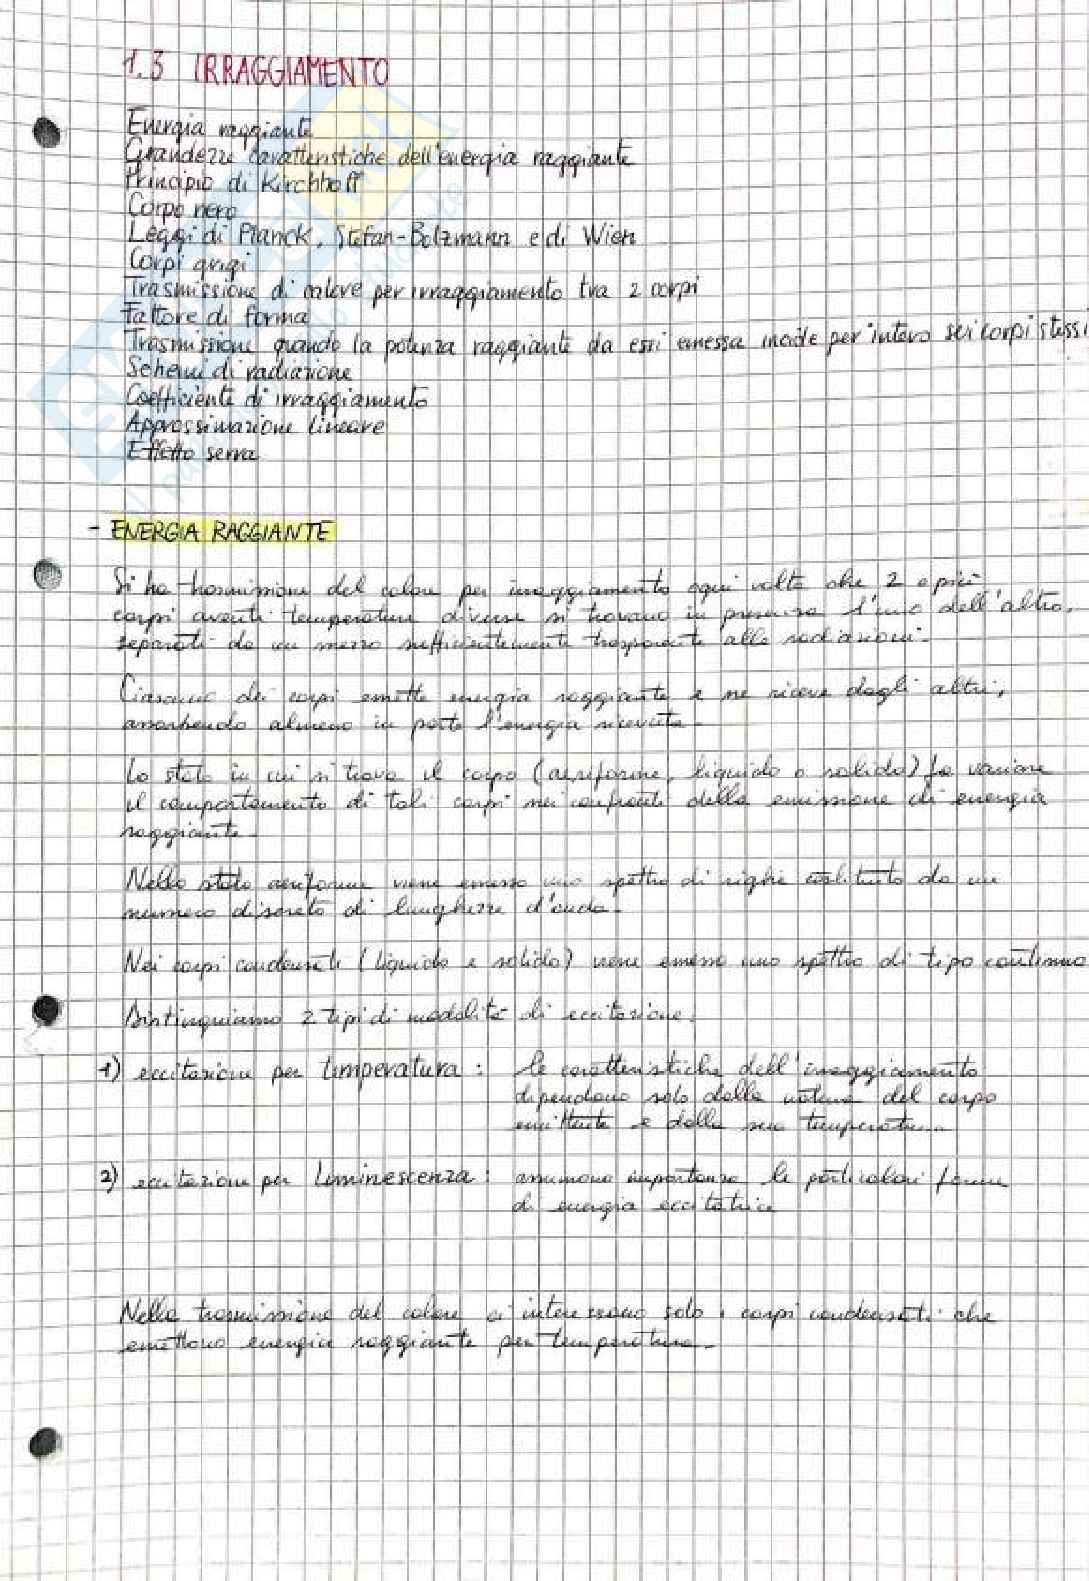 1.3 IRRAGGIAMENTO
Energia raggiante
Grandezze caratteristiche dell'energia raggiante
Principio di Kirchhoff
Corpo nero
Leggi di Planck, Stefan-Bolzmann e di Wien
Corpi grigi
Trasmissione di calore per irraggiamento tra 2 corpi
Fattore di forma
Trasmissione quando la potenza raggiante da essi emessa incide per intero sei corpi stessi
Schemi di radiazione
Coefficiente di irraggiamento
Approssimazione lineare
Effetto serra
- ENERGIA RAGGIANTE
Si ha trasmissione del calore per irraggiamento ogni volta che 2 o più
corpi aventi temperature diverse si trovano in presenza l'uno dell'altro,
separati da un mezzo sufficientemente trasparente alle radiazioni.
Ciascuno dei corpi emette energia raggiante e ne riceve dagli altri,
assorbendo almeno in parte l'energia ricevuta.
Lo stato in cui si trova il corpo (aeriforme, liquido o solido) fa variare
il comportamento di tali corpi nei confronti della emissione di energia
raggiante.
Nello stato aeriforme viene emesso uno spettro di righe costituito da un
numero discreto di lunghezze d'onda.
Nei corpi condensati (liquido e solido) viene emesso uno spettro di tipo continuo
Distinguiamo 2 tipi di modalità di eccitazione:
1) eccitazione per temperatura: le caratteristiche dell'irraggiamento
dipendono solo dalla natura del corpo
emittente e dalla sua temperatura.
2) eccitazione per luminescenza: assumono importanza le particolari forme
di energia eccitatrice
Nella trasmissione del calore ci interessano solo i corpi condensati che
emettono energia raggiante per temperatura.